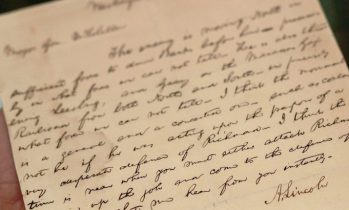 Washington
Major Gen. McClellan
The enemy is moving North in
sufficient force to drive Banks before him in precisely
what force we can not tell. He is also threatening
Leesburg, and Geary on the Manassas Gap
Railroad from both North and South in precisely
what force we can not tell. I think the movement
is a general and a concerted one, such as could
not be if he was acting upon the purpose of a
very desperate defence of Richmond. I think the
time is near when you must either attack Richmond
or give up the job and come to the defence of
let me hear from you instantly.
A. Lincoln